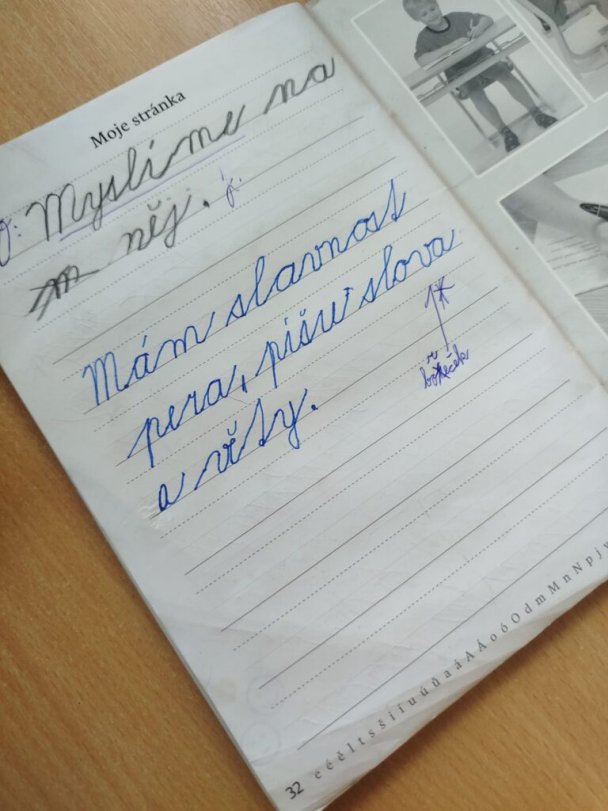 Moje stránka
Myslíme na
něj.
j.
Mám slavnost
pera, píšu slova
a věty.
1x
bříšek
32 e é ě l t s š i í u ú ů a á A Á o ó O d m M n N p j v